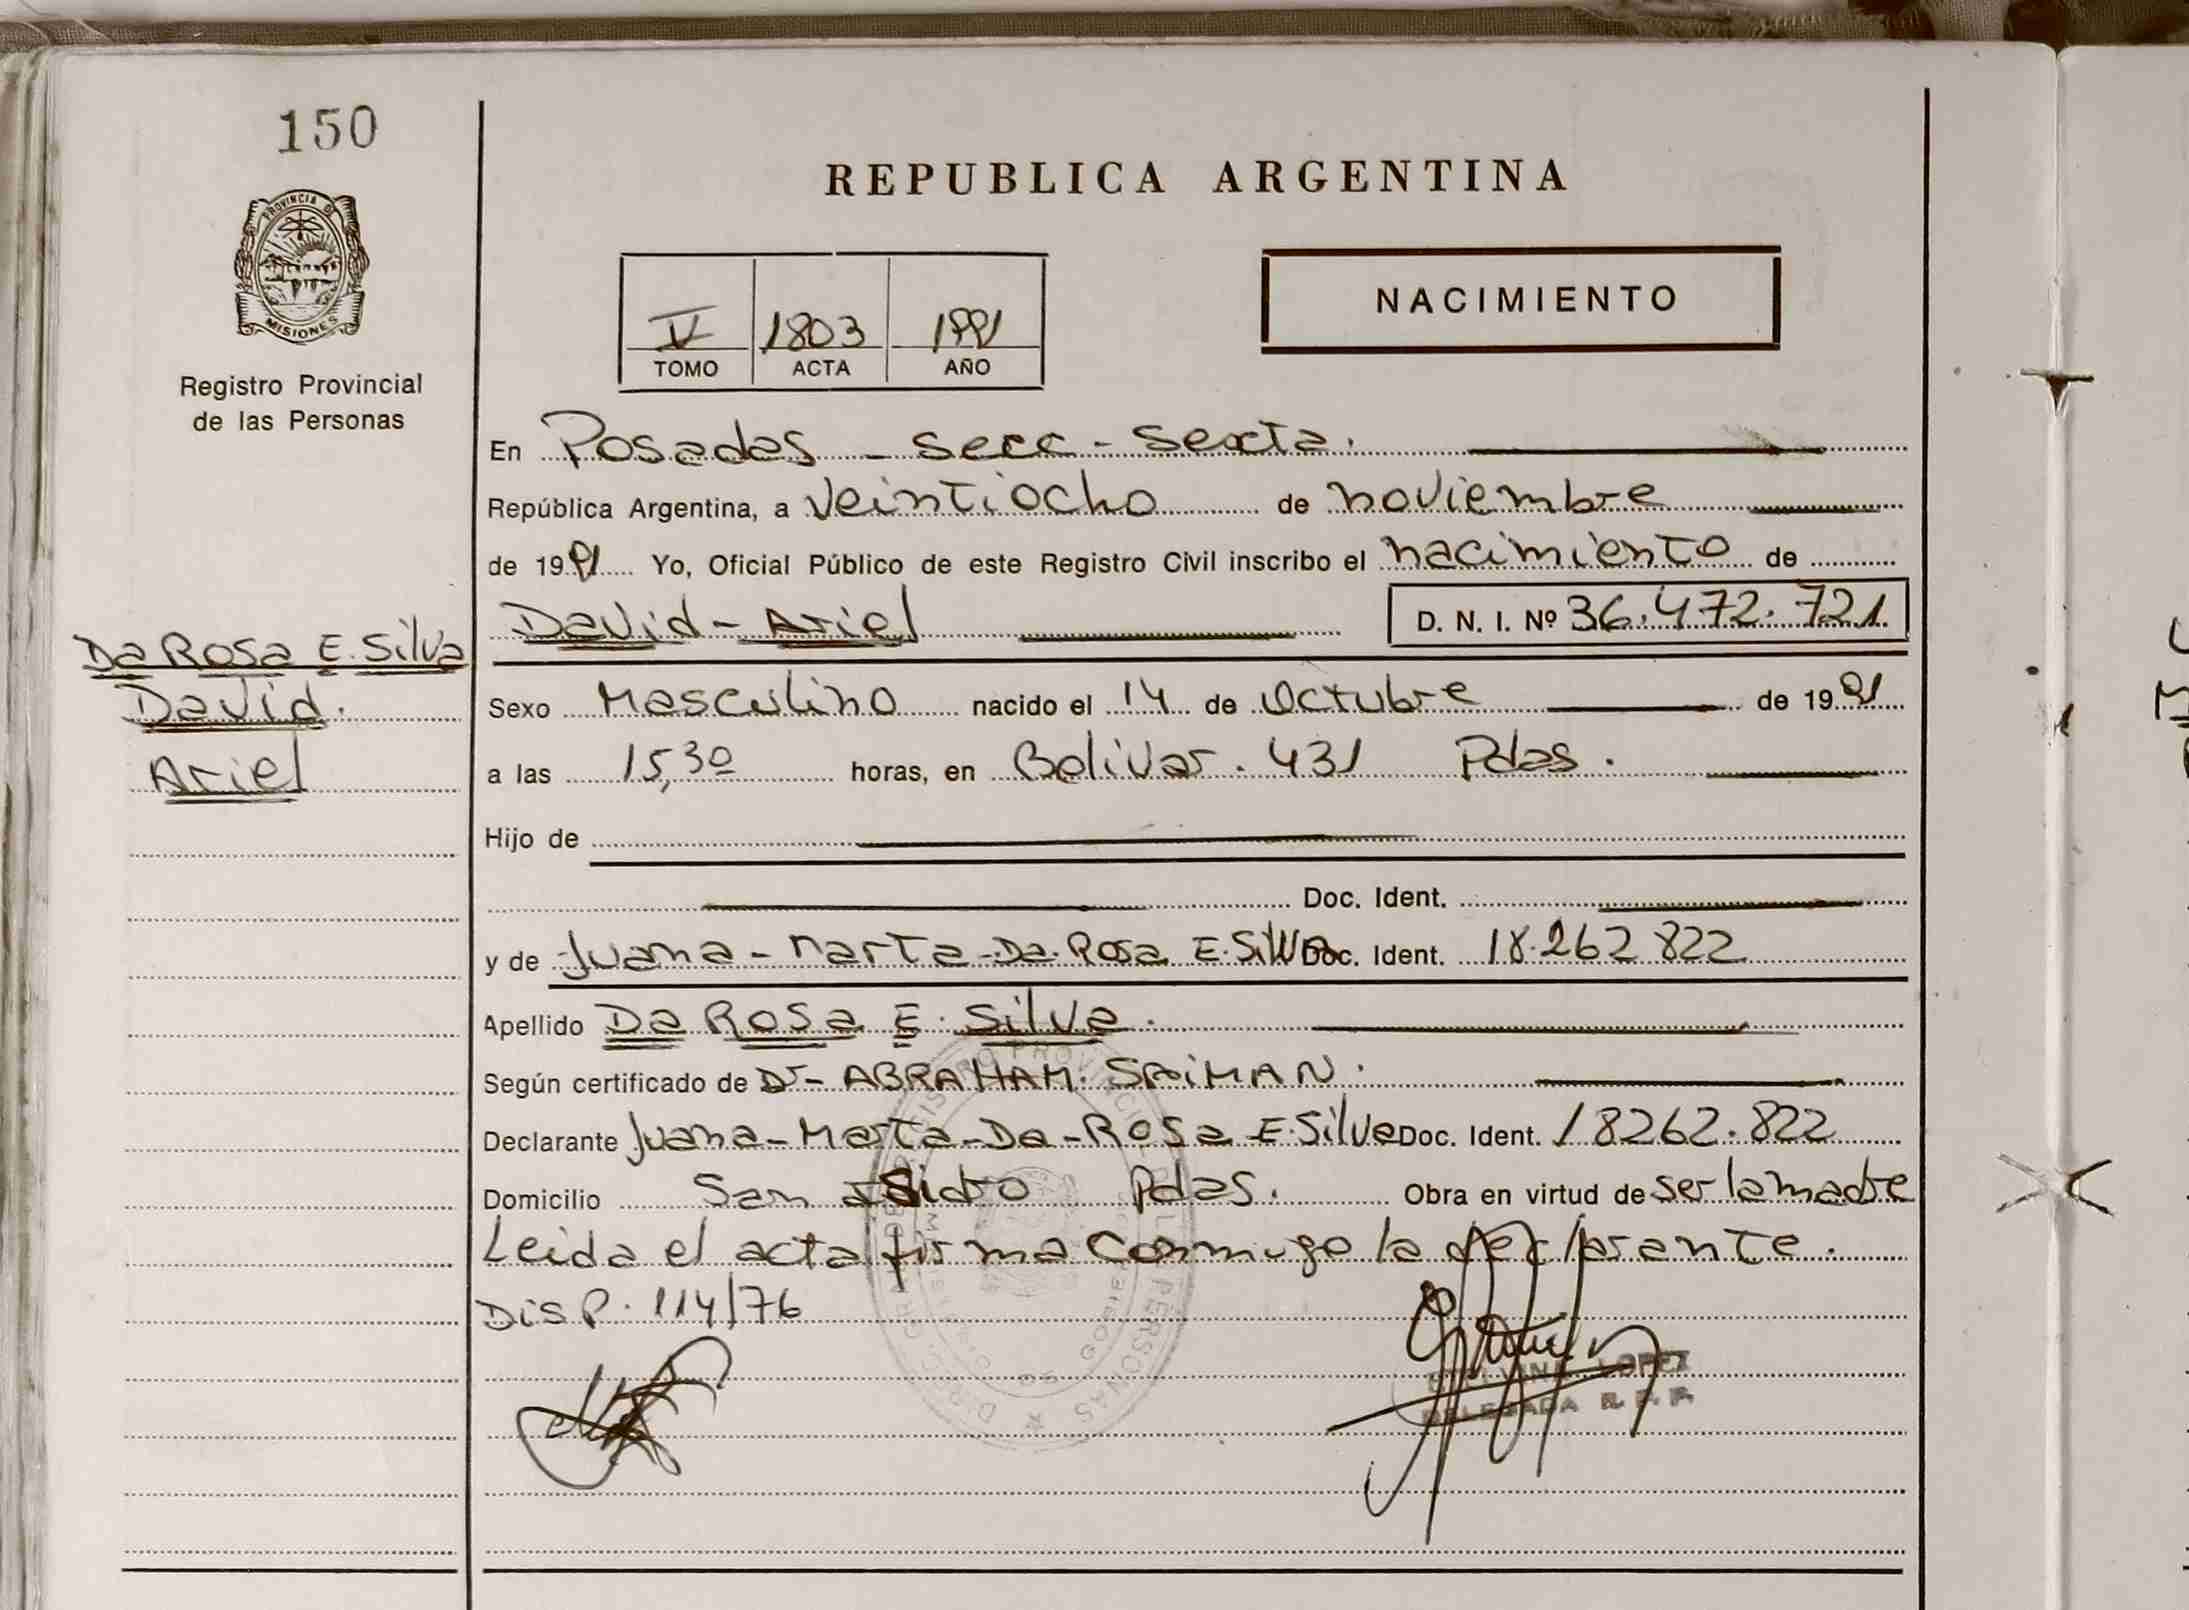 150
REPUBLICA ARGENTINA
PROVINCIA DE
MISIONES
Registro Provincial
de las Personas
V 1803 1991
TOMO ACTA AÑO
NACIMIENTO
En Posadas - Secc - Sexta.
República Argentina, a Veintiocho de noviembre
de 1991 Yo, Oficial Público de este Registro Civil inscribo el nacimiento de
David - Ariel D. N. I. Nº 36.472.721
Da Rosa E. Silva
David.
Ariel
Sexo Masculino nacido el 14 de Octubre de 1991
a las 15,30 horas, en Bolivar. 431 Pdas.
Hijo de
Doc. Ident.
y de Juana - Marta - Da. Rosa E. Silva Doc. Ident. 18.262 822
Apellido Da Rosa E. Silva.
Según certificado de Dr - ABRAHAM. SAIMAN.
Declarante Juana - Marta - Da - Rosa E. Silva Doc. Ident. 18262.822
Domicilio San Isidro Pdas. Obra en virtud de ser la madre
Leida el acta firma conmigo la declarante.
Disp. 114/76
LOPEZ
DELEGADA R. P. P.